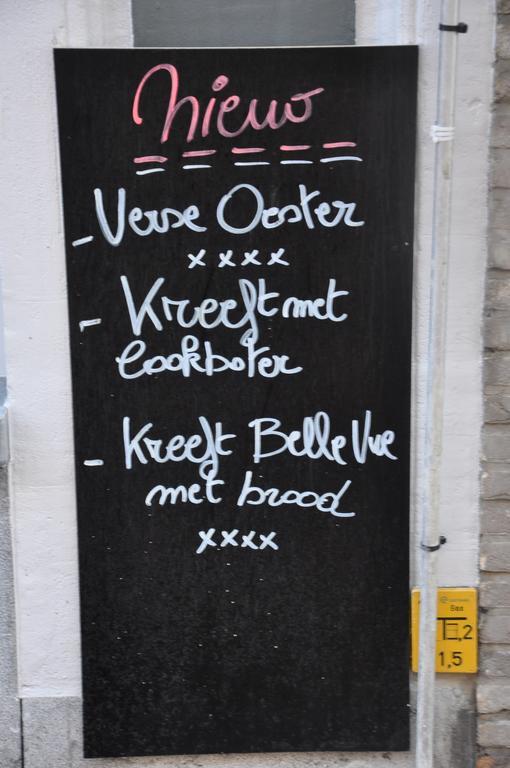 Nieuw
- Verse Oester
xxxx
- Kreeft met
lookboter
- Kreeft Belle Vue
met brood
xxxx
Gas
,2
1,5